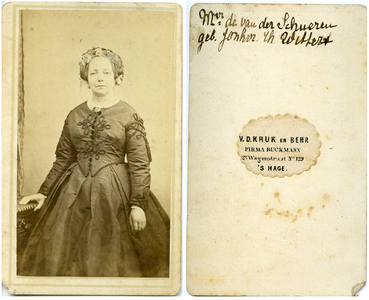 Mvr de van der Schueren
geb. Jonkvr. Th Wittert
V. D. KRUK EN BEHR
FIRMA BUCKMANN
Wagenstraat No 129
'S HAGE.